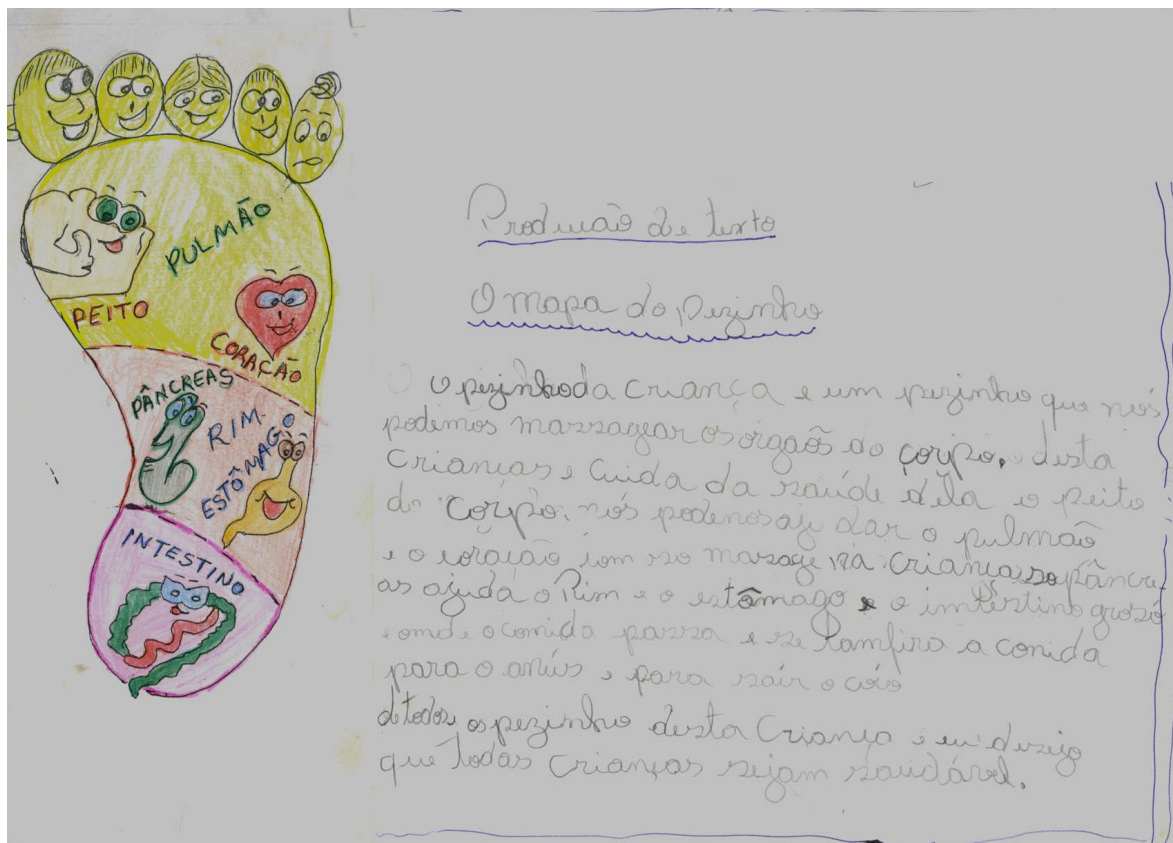 PULMÃO
PEITO
CORAÇÃO
PÂNCREAS
RIM
ESTÔMAGO
INTESTINO
Produção de texto
O mapa do pezinho
O pezinho da criança e um pezinho que nós
podemos massagear os orgaõs do corpo, desta
crianças e cuida da saúde dela o peito
do corpo. nós podemos aju dar o pulmão
e o coração com so masage na criança so pâncre
as ajuda o Rim e o estômago e o imtestino groso
e omde o comida passa e se tamfira a conida
para o anús e para sair o cóco
de todos os pezinho desta Criança e eu desejo
que todas crianças sejam saudável.